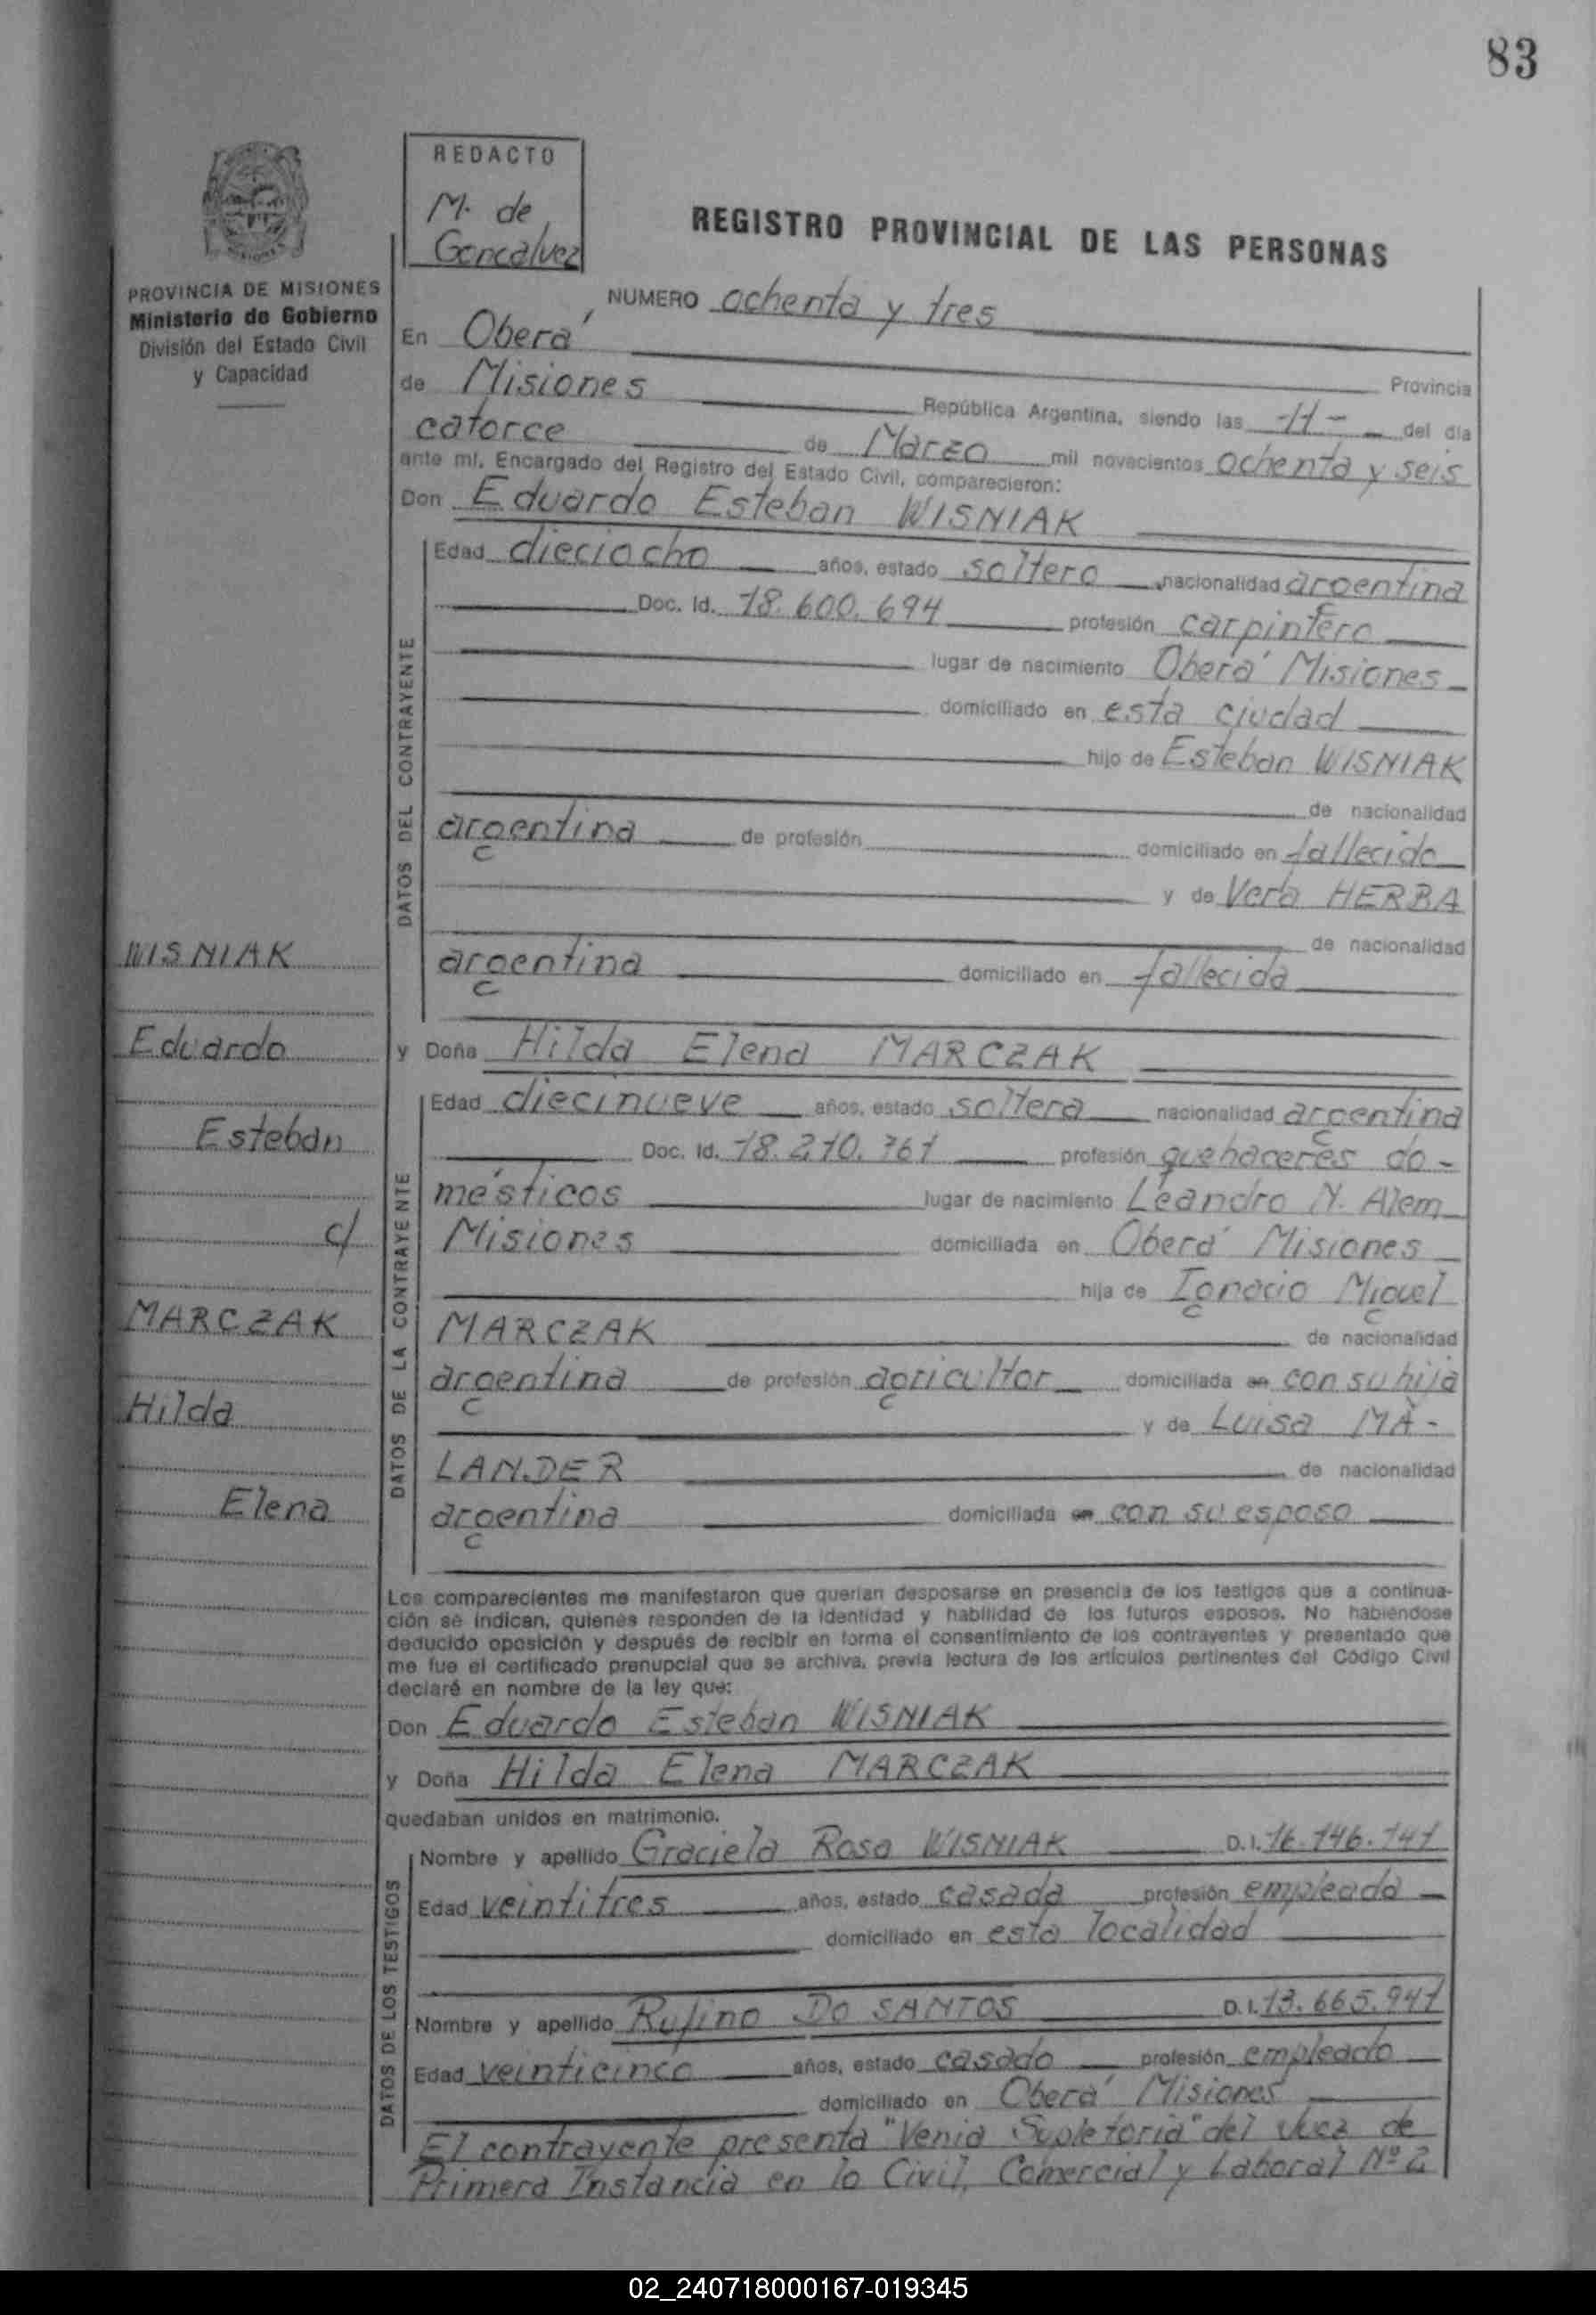 83
REDACTO
M. de
Goncalvez
REGISTRO PROVINCIAL DE LAS PERSONAS
PROVINCIA DE MISIONES
Ministerio de Gobierno
División del Estado Civil
y Capacidad
NUMERO ochenta y tres
En Oberá
Provincia
de Misiones República Argentina, siendo las -11- del día
catorce de Marzo mil novecientos ochenta y seis
ante mí, Encargado del Registro del Estado Civil, comparecieron:
Don Eduardo Esteban WISNIAK
DATOS DEL CONTRAYENTE
Edad dieciocho años, estado soltero nacionalidad argentina
Doc. Id. 18.600.694 profesión carpintero
lugar de nacimiento Oberá Misiones
domiciliado en esta ciudad
hijo de Esteban WISNIAK
de nacionalidad
argentina de profesión domiciliado en fallecido
y de Vera HERBA
de nacionalidad
argentina domiciliado en fallecida
y Doña Hilda Elena MARCZAK
DATOS DE LA CONTRAYENTE
Edad diecinueve años, estado soltera nacionalidad argentina
Doc. Id. 18.210.761 profesión quehaceres do-
mésticos lugar de nacimiento Leandro N. Alem
Misiones domiciliada en Oberá Misiones
hija de Ignacio Miguel
MARCZAK de nacionalidad
argentina de profesión agricultor domiciliada en con su hija
y de Luisa MA-
LANDER de nacionalidad
argentina domiciliada en con su esposo
WISNIAK
Eduardo
Esteban
c/
MARCZAK
Hilda
Elena
Los comparecientes me manifestaron que querían desposarse en presencia de los testigos que a continua-
ción se indican, quienes responden de la identidad y habilidad de los futuros esposos. No habiéndose
deducido oposición y después de recibir en forma el consentimiento de los contrayentes y presentado que
me fue el certificado prenupcial que se archiva, previa lectura de los artículos pertinentes del Código Civil
declaré en nombre de la ley que:
Don Eduardo Esteban WISNIAK
y Doña Hilda Elena MARCZAK
quedaban unidos en matrimonio.
DATOS DE LOS TESTIGOS
Nombre y apellido Graciela Rosa WISNIAK D.I. 16.146.141
Edad veintitres años, estado casada profesión empleada
domiciliado en esta localidad
Nombre y apellido Rufino DO SANTOS D.I. 13.665.941
Edad veinticinco años, estado casado profesión empleado
domiciliado en Oberá Misiones
El contrayente presenta "Venia Supletoria" del Juez de
Primera Instancia en lo Civil, Comercial y Laboral Nº 2
02_240718000167-019345